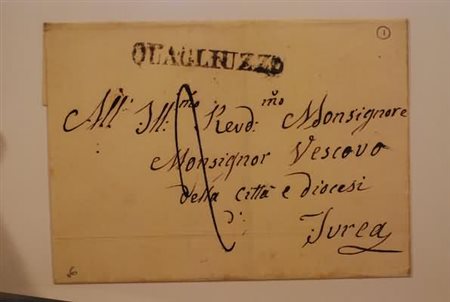 1
QUAGLIUZZO
All' Ill.mo Revd.mo Monsignore
Monsignor Vescovo
della Città e diocesi
di
Ivrea